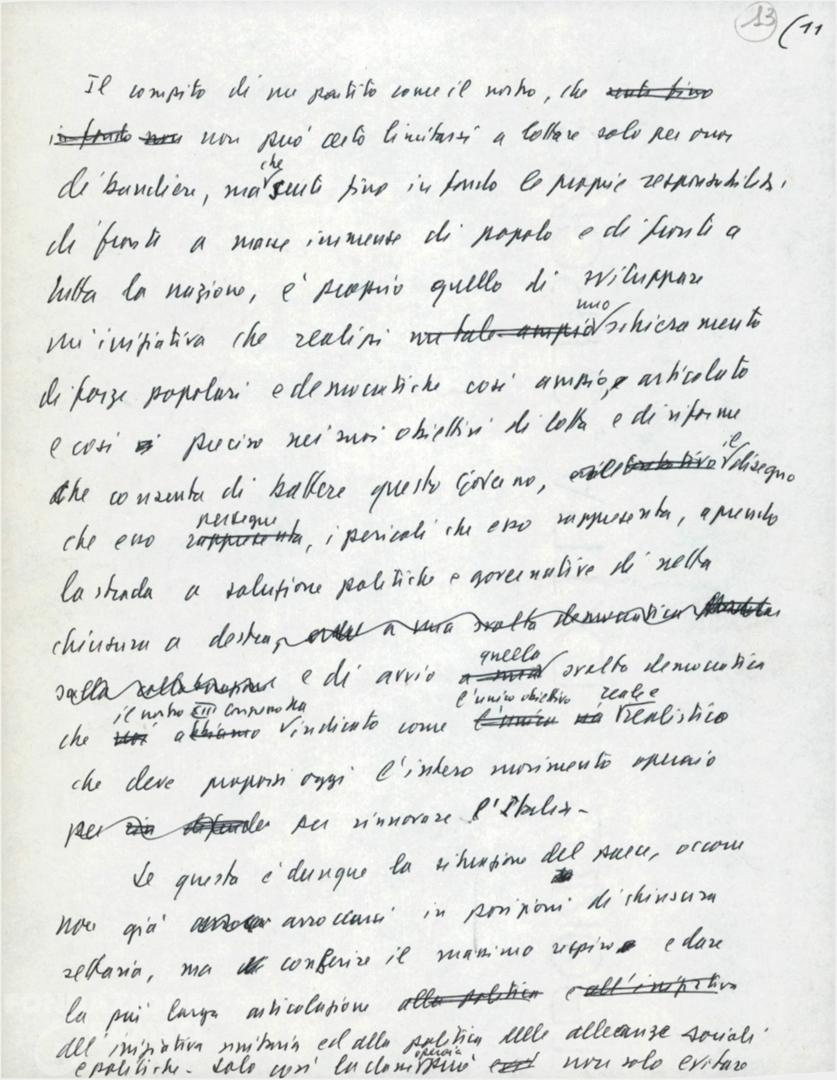 13 (11
Il compito di un partito come il nostro, che senta fino
in fondo non non può certo limitarsi a lottare solo per onor
di bandiera, ma che senta fino in fondo le proprie responsabilità,
di fronte a masse immense di popolo e di fronte a
tutta la nazione, è proprio quello di sviluppare
un'iniziativa che realizzi un tale ampio uno schieramento
di forze popolari e democratiche così ampio e articolato
e così preciso nei suoi obiettivi di lotta e di riforme
che consenta di battere questo Governo, il disegno
che esso rappresenta persegue, i pericoli che esso rappresenta, aprendo
la strada a soluzione politiche e governative di netta
chiusura a destra, a una svolta democratica
sulla e di avvio a una quella svolta democratica
che noi abbiamo il nostro XIII Congresso ha indicato come l'unico l'unico obiettivo reale e realistico
che deve proporsi oggi l'intero movimento operaio
per per rinnovare l'Italia.
Se questa è dunque la situazione del paese, occorre
non già arroccarsi in posizioni di chiusura
settaria, ma conferire il massimo respiro e dare
la più larga articolazione alla politica e all'iniziativa
all'iniziativa unitaria ed alla politica delle alleanze sociali
e politiche. Solo così la classe operaia può non solo evitare